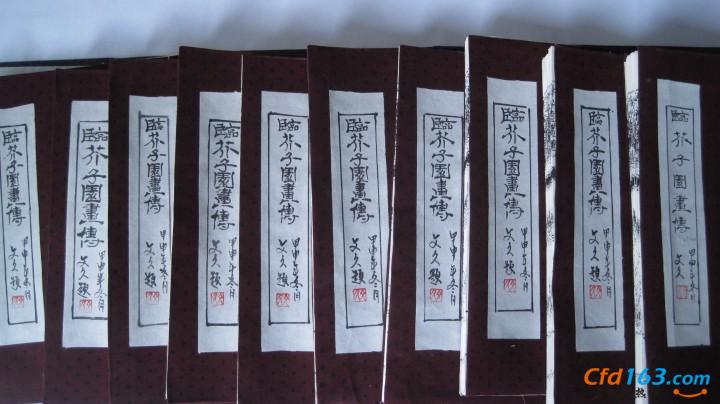 臨芥子園畫傳
甲申年冬月
文久題
臨芥子園畫傳
甲申年冬月
文久題
臨芥子園畫傳
甲申年冬月
文久題
臨芥子園畫傳
甲申年冬月
文久題
臨芥子園畫傳
甲申年冬月
文久題
臨芥子園畫傳
甲申年冬月
文久題
臨芥子園畫傳
甲申年冬月
文久題
臨芥子園畫傳
甲申年冬月
文久題
臨芥子園畫傳
甲申年冬月
文久題
臨芥子園畫傳
甲申年冬月
文久
Cfd163.com